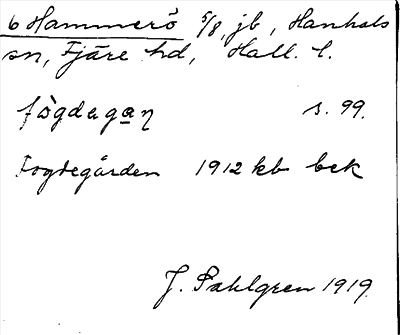 6 Hammerö 5/8 jb, Hanhals
sn, Fjäre hd, Hall. l.
fògdagaṇ s. 99.
Fogdegården 1912 kb bek
J. Sahlgren 1919.